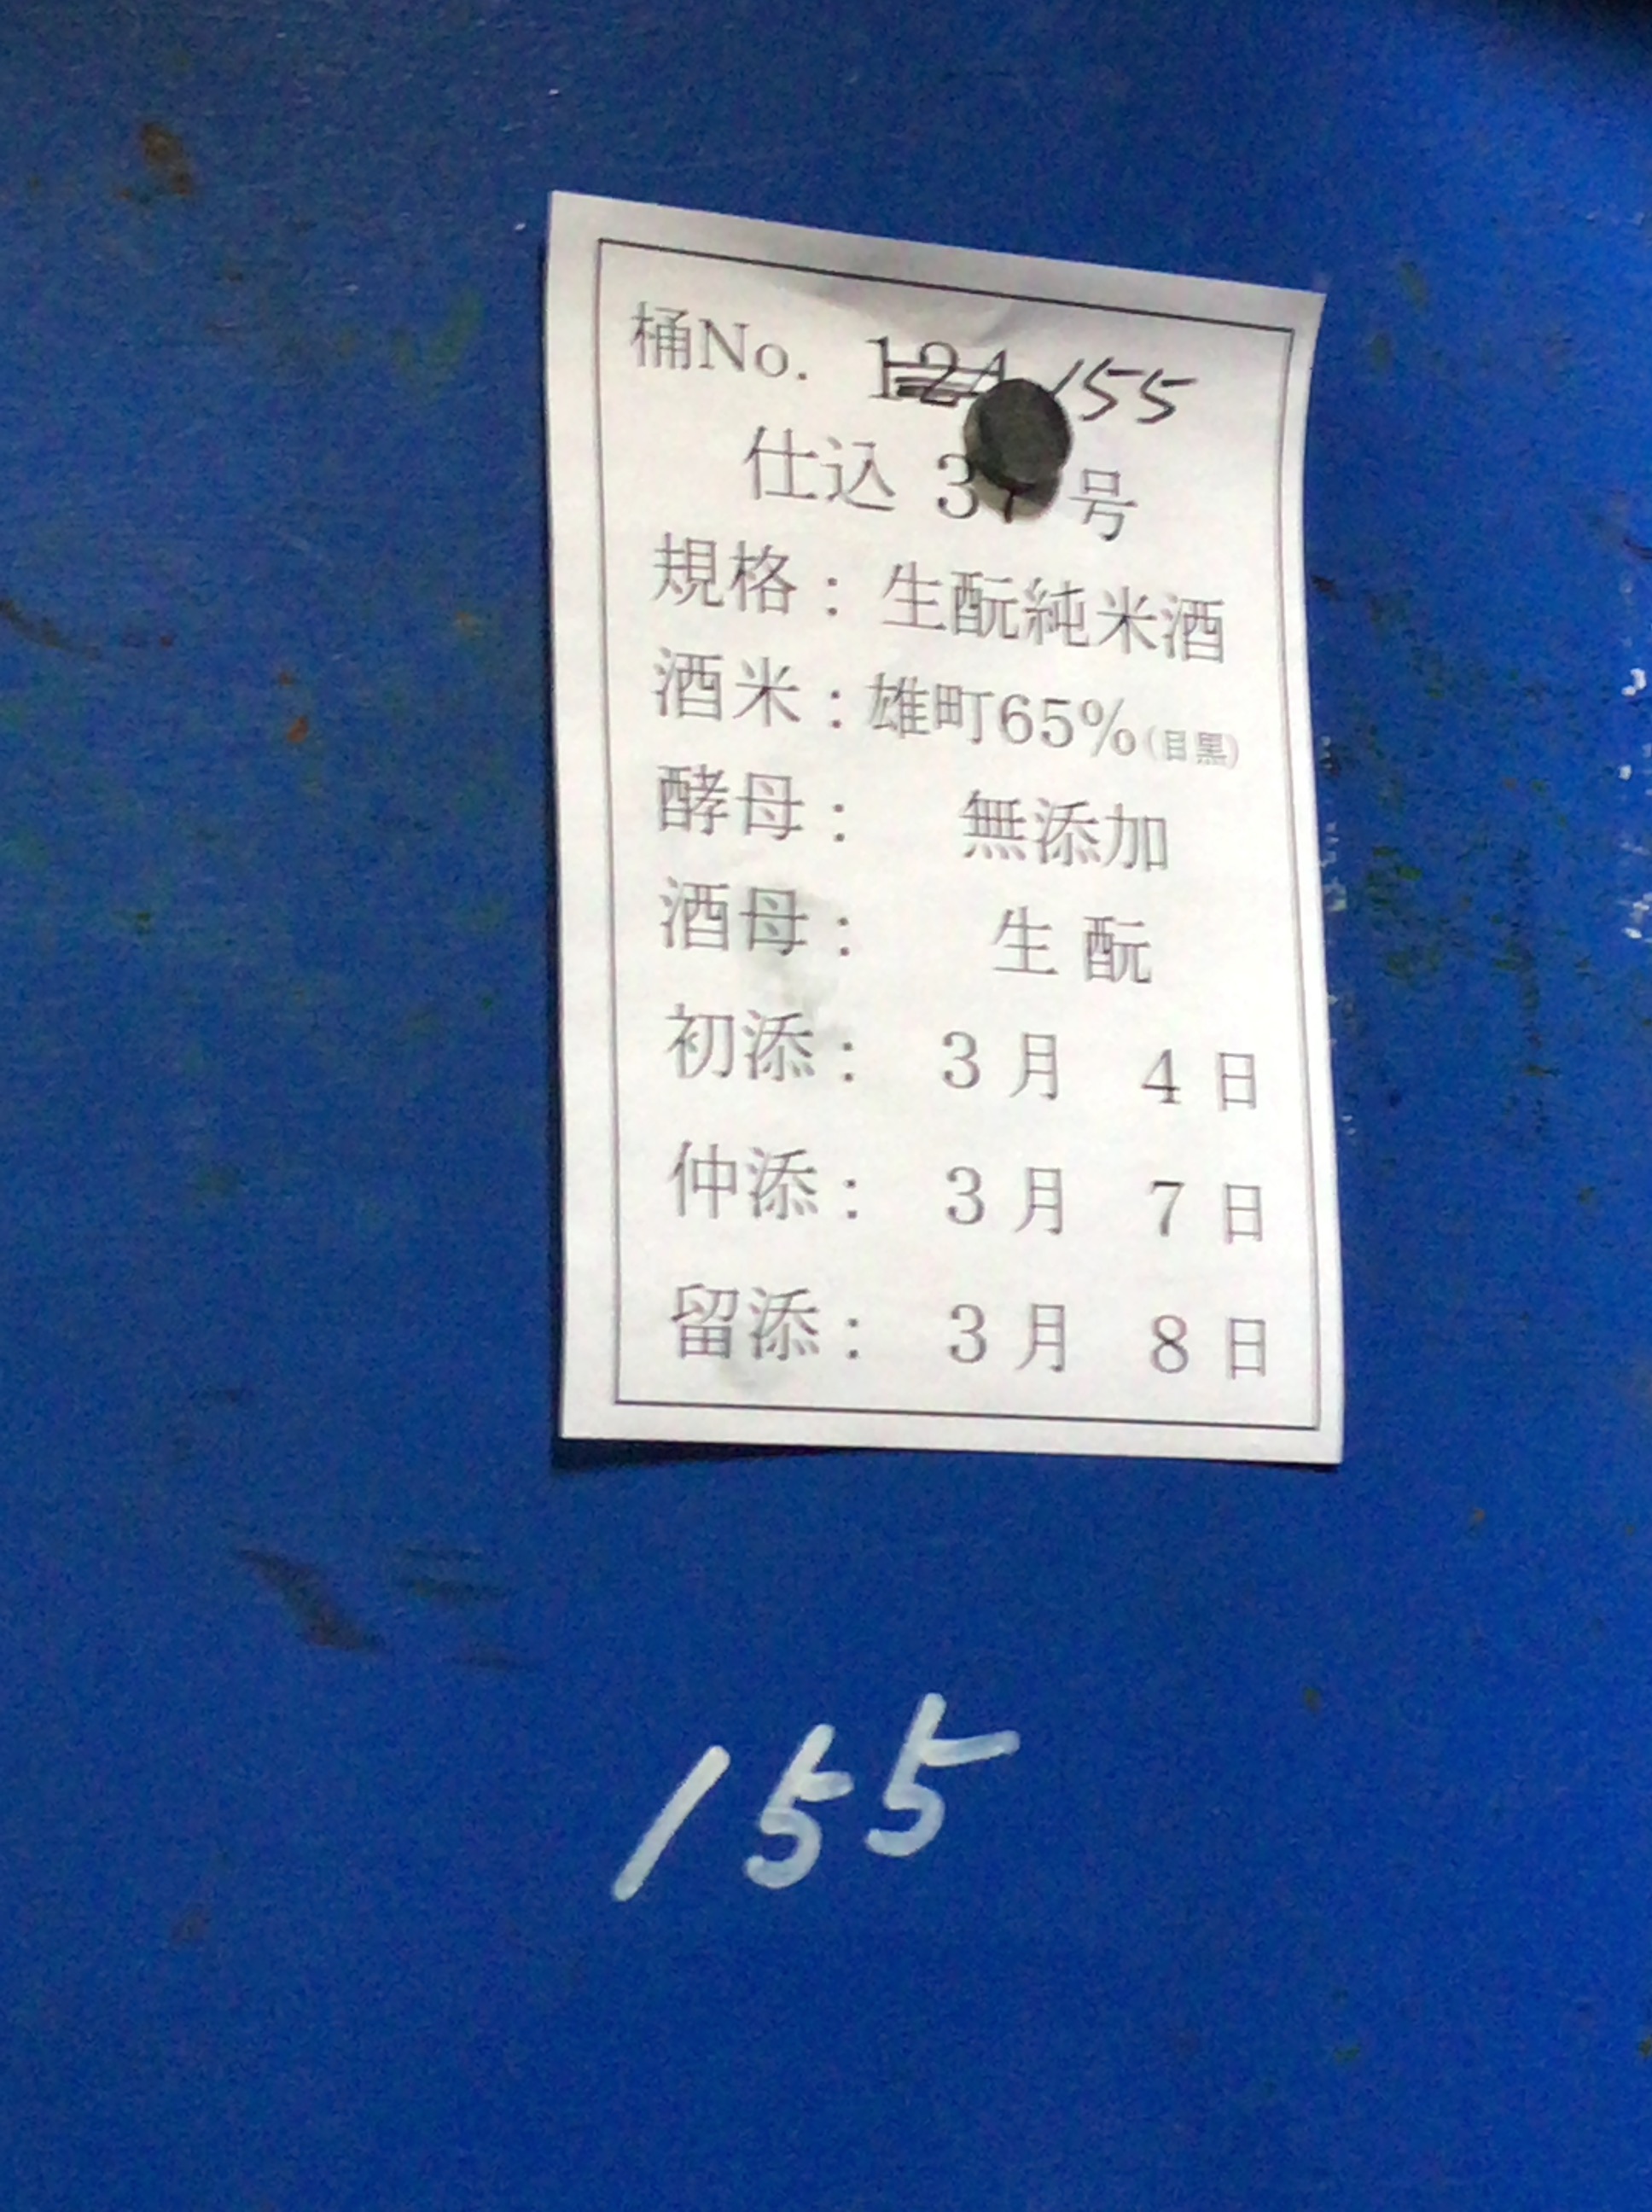 桶No. 124 155
仕込 37 号
規格：生酛純米酒
酒米：雄町65%(目黒)
酵母： 無添加
酒母： 生酛
初添： 3月 4日
仲添： 3月 7日
留添： 3月 8日
155